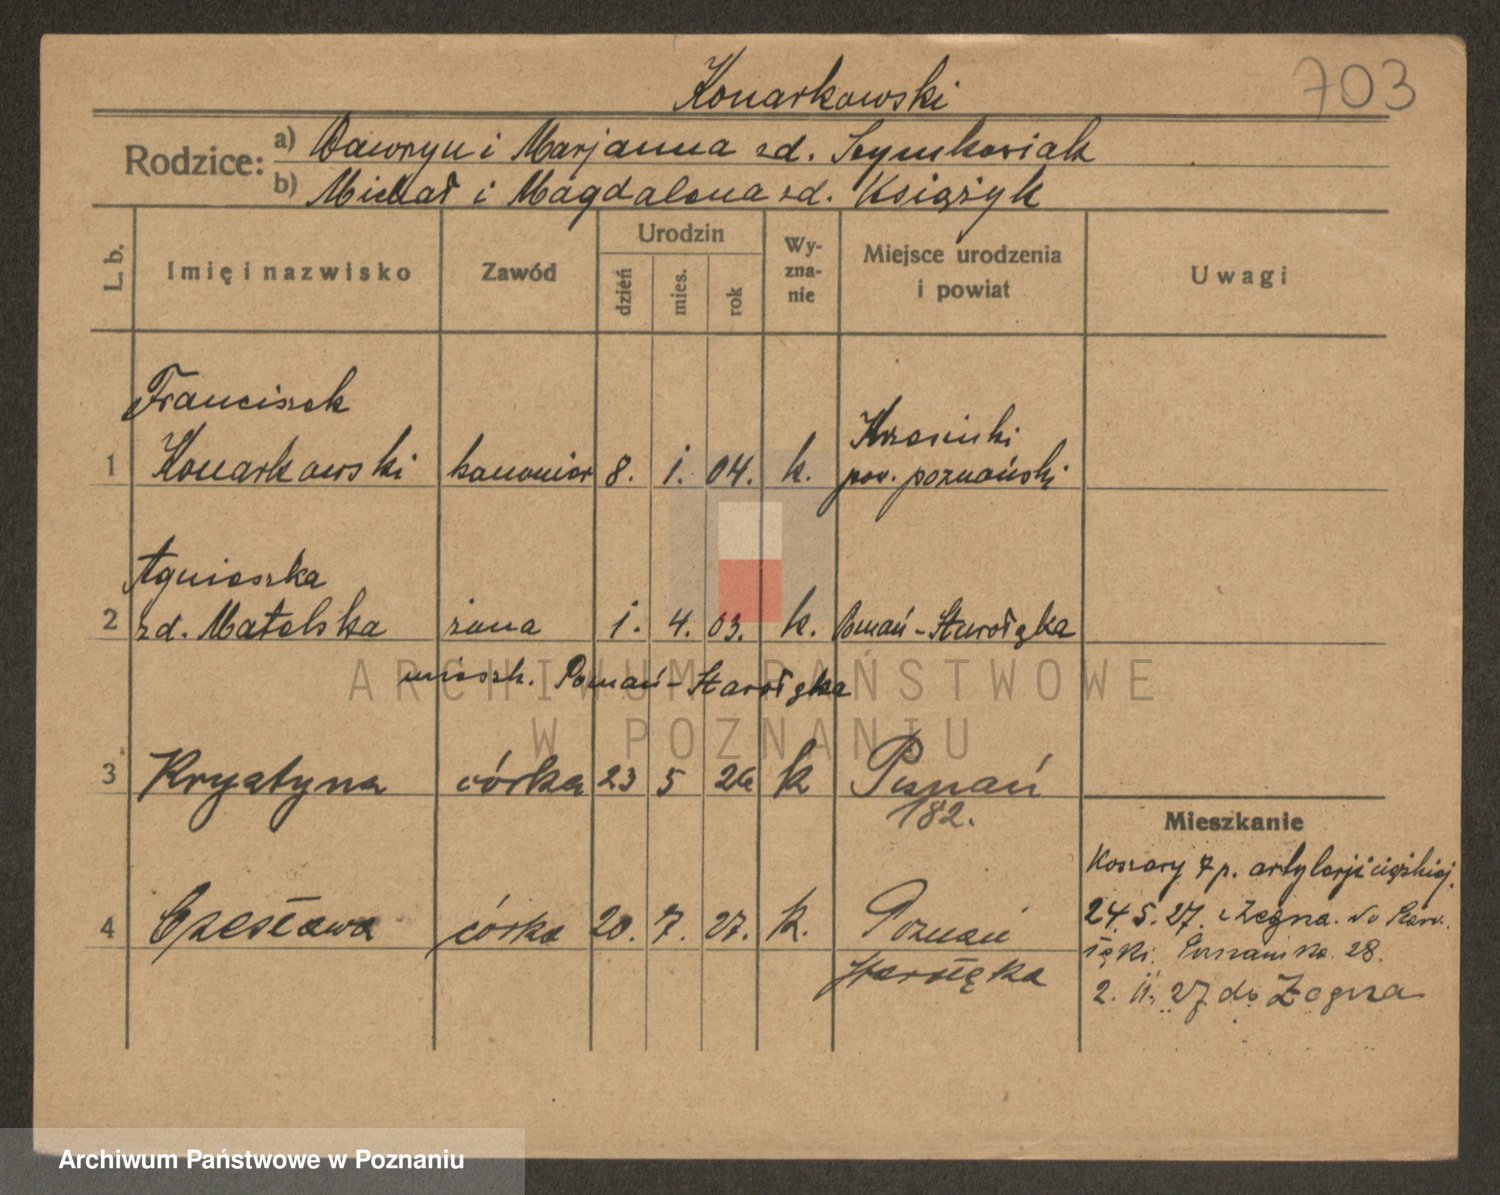 Konarkowski
703
Rodzice: a) Wawrzyn i Marjanna zd. Szymkowiak
b) Michał i Magdalena zd. Księżyk
L. b.
Imię i nazwisko
Zawód
Urodzin
dzień
mies.
rok
Wy-
zna-
nie
Miejsce urodzenia
i powiat
Uwagi
Franciszek
1 Konarkowski kanonier 8. 1. 04. k. pow. poznański
Agnieszka
2 zd. Matelska żona 1. 4. 03. k. Poznań-Starołęka
mieszk. Poznań-Starołęka
3 Krystyna córka 23 5 26 k Poznań
182.
Mieszkanie
Koszary 7 p. artylerji ciężkiej.
4 Czesława córka 20. 7. 27. k. Poznań
Starołęka
24.5.27. z Zegrza. do Staro-
łęki. 28.
2. 11. 27. do Zegrza
ARCHIWUM PAŃSTWOWE
W POZNANIU
Archiwum Państwowe w Poznaniu